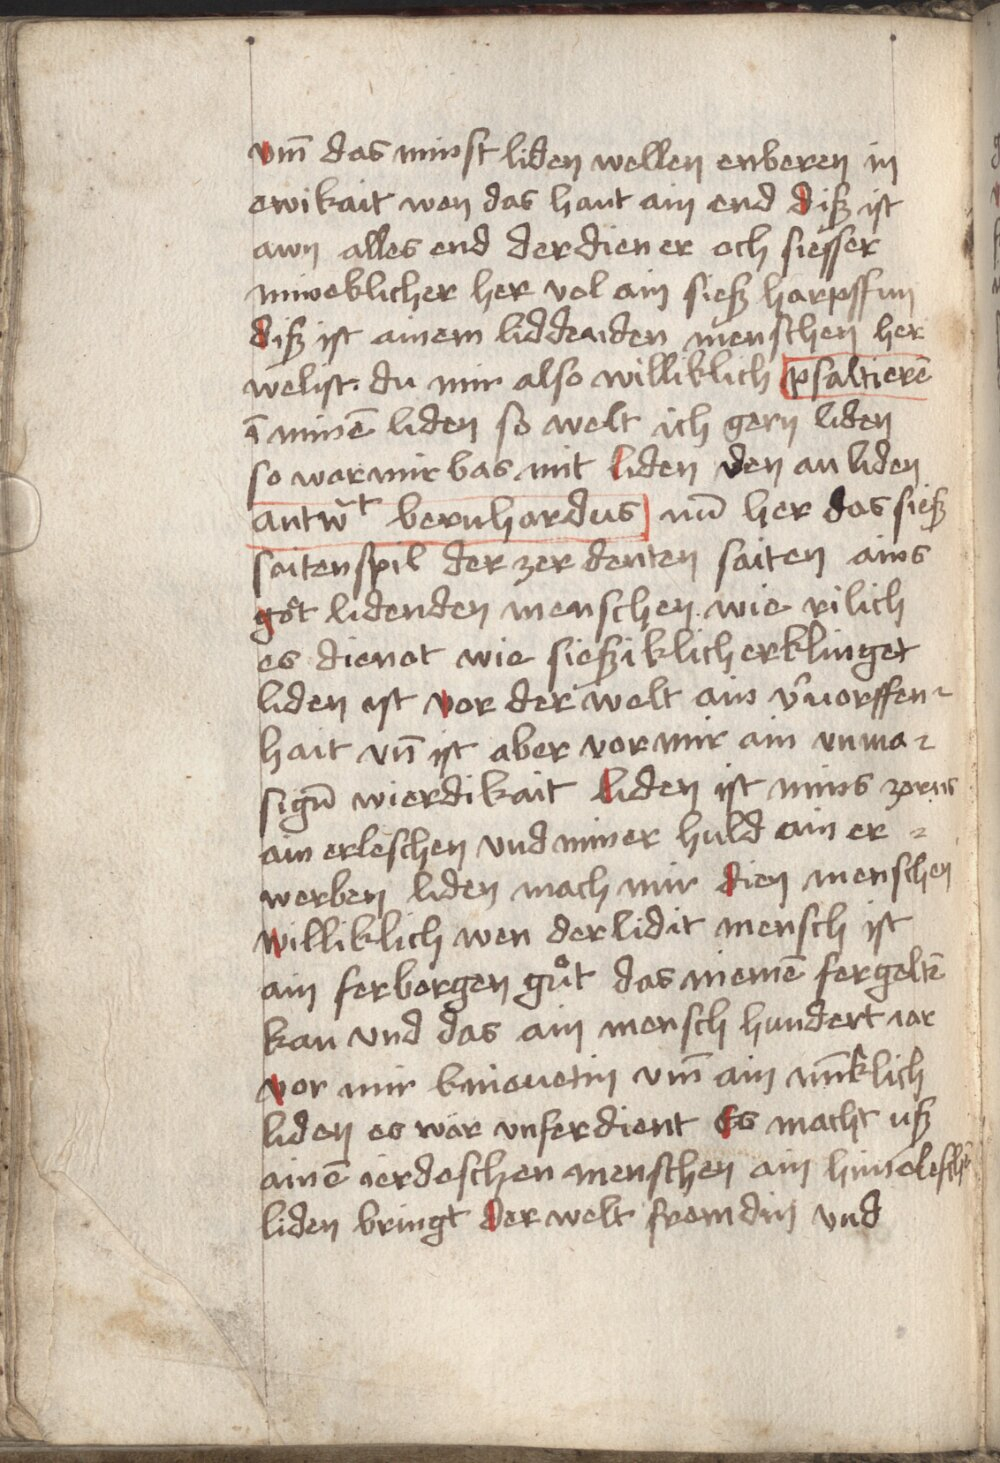 vm̄ das minst liden wellen enberen in
ewikait wen das haut ain end diß ist
awn alles end der diener och siesser
mineklicher her vol ain sieß harpffun
diß ist ainem liddenden menschen her
welist du mir also williklich psaltierē
ī minē liden so welt ich gern liden
so war mir bas mit liden den an liden
antw̄t bernhardus nū her das sieß
saitenspil der zer denten saiten ains
gŏt lidenden menschen wie rilich
es dienet wie sießiklich erklinget
liden ist vor der welt ain v̄worffen-
hait vn̄ ist aber vor mir ain vnma-
sigū wierdikait liden ist mins zorns
ain erleschen vnd miner huld ain er-
werben liden mach mir dien menschen
williklich wen der lidit mensch ist
ain ferborgen guͦt das niemē fergeltē
kan vnd das ain mensch hundert iar
vor mir knieuetin vm̄ ain
liden es war vnferdient Es macht uß
ainē ierdeschen menschen ain himeleschē
liden bringt der welt fremdin vnd